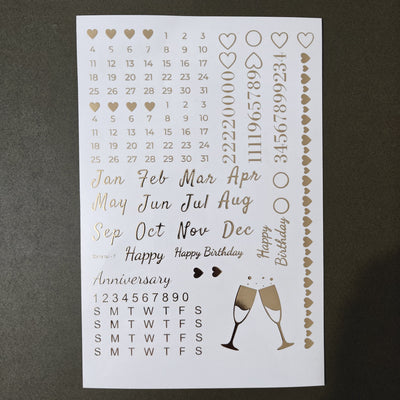 1 2 3
4 5 6 7 8 9 10
11 12 13 14 15 16 17
18 19 20 21 22 23 24
25 26 27 28 29 30 31
1 2 3
4 5 6 7 8 9 10
11 12 13 14 15 16 17
18 19 20 21 22 23 24
25 26 27 28 29 30 31
Jan Feb Mar Apr
May Jun Jul Aug
Sep Oct Nov Dec
Happy Happy Birthday
Happy
Birthday
Anniversary
1 2 3 4 5 6 7 8 9 0
S M T W T F S
S M T W T F S
S M T W T F S
S M T W T F S